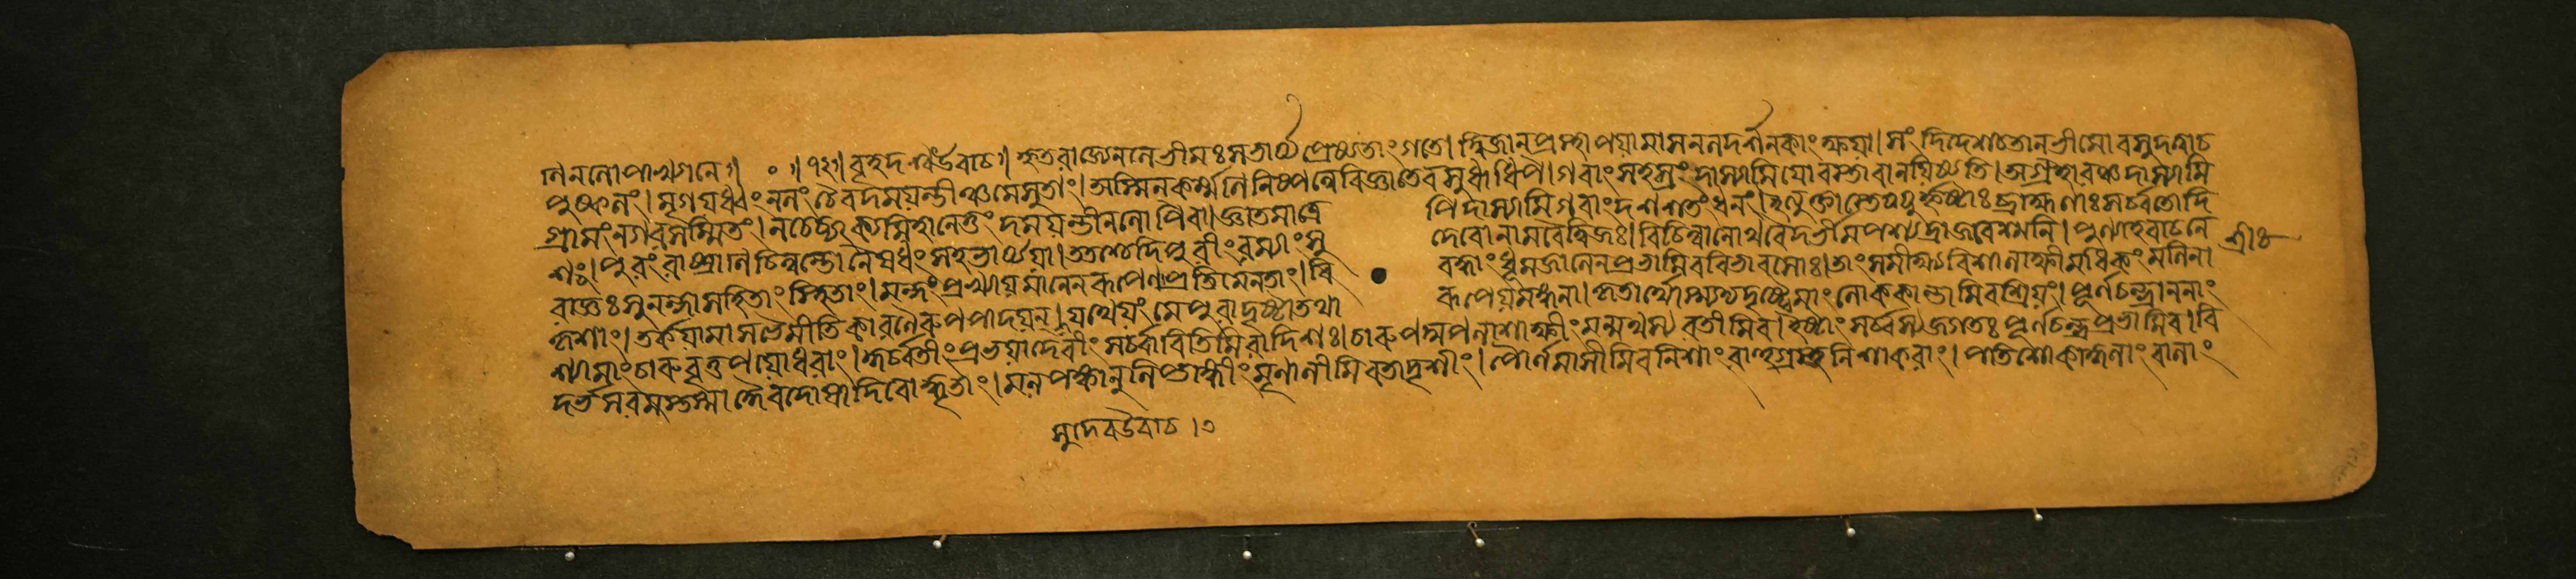 নলোপাখ্যানে॥ ॰ ॥১২॥ বৃহদশ্ব উবাচ॥ হৃতরাজ্যে নলে ভীমঃ সভার্য্যে প্রেষ্যতাং গতে। দ্বিজান্ প্রস্থাপয়ামাস নলদর্শনকাংক্ষয়া। সংদিদেশ চ তান্ ভীমো বসু দত্ত্বা চ
পুষ্কলং। মৃগয়ধ্বং নলং চৈব দময়ন্তীঞ্চ মে সুতাং। অস্মিন্ কর্ম্মণি নিষ্পন্নে বিজ্ঞাতে বসুধাধিপে। গবাং সহস্রং দাস্যামি যো বস্তাবানয়িষ্যতি। অগ্রহারঞ্চ দাস্যামি
গ্রামং নগরসম্মিতং। ন চেচ্ছক্যামিহানেতুং দময়ন্তীনলোপিবা। জ্ঞাতমাত্রে পি দাস্যামি গবাং দশশতং ধনং। ইত্যুক্তাস্তে যযুর্হৃষ্টাঃ ব্রাহ্মণাঃ সর্ব্বতো দি
শঃ। পুরং রাষ্ট্রাণি চিন্বন্তো নৈষধং সহভার্য্যয়া। ততশ্চেদিপুরীং রম্যাং সু দেবো নাম বৈ দ্বিজঃ। বিচিন্বানো থ বৈদর্ভীমপশ্যদ্রাজবেশ্মনি। পুণ্যাহবাচনে শ্রীঃ
রাজ্ঞঃ সুনন্দাসহিতাং স্থিতাং। মন্দং প্রখ্যায়মানেন রূপেণাপ্রতিমেন তাং। বি বদ্ধাং ধূমজালেন প্রভামিব বিভাবসোঃ। তাং সমীক্ষ্য বিশালাক্ষীমধিকং মলিনা
কৃশাং। তর্কয়ামাস ভৈমীতি কারণৈরুপপাদয়ন্। যথেয়ং মে পুরা দৃষ্টা তথা রূপেয়মঙ্গনা। কৃতার্থোস্ম্যদ্য দৃষ্ট্বেমাং লোককান্তামিব শ্রিয়ং। পূর্ণচন্দ্রাননাং
শ্যামাং চারুবৃত্তপয়োধরাং। কুর্ব্বতীং প্রভয়া দেবীং সর্ব্বা বিতিমিরা দিশঃ। চারুপদ্মপলাশাক্ষীং মন্মথস্য রতীমিব। ইষ্টাং সর্ব্বস্য জগতঃ পূর্ণচন্দ্রপ্রভামিব। বি
দর্ভসরসস্তস্মাদ্দৈবদোষাদিবোদ্ধৃতাং। মলপঙ্কানুলিপ্তাঙ্গীং মৃণালীমিব তাং ভৃশীং। পৌর্ণমাসীমিব নিশাং রাহুগ্রস্তনিশাকরাং। পতিশোকাকুলাং
সুদেব উবাচ।৩